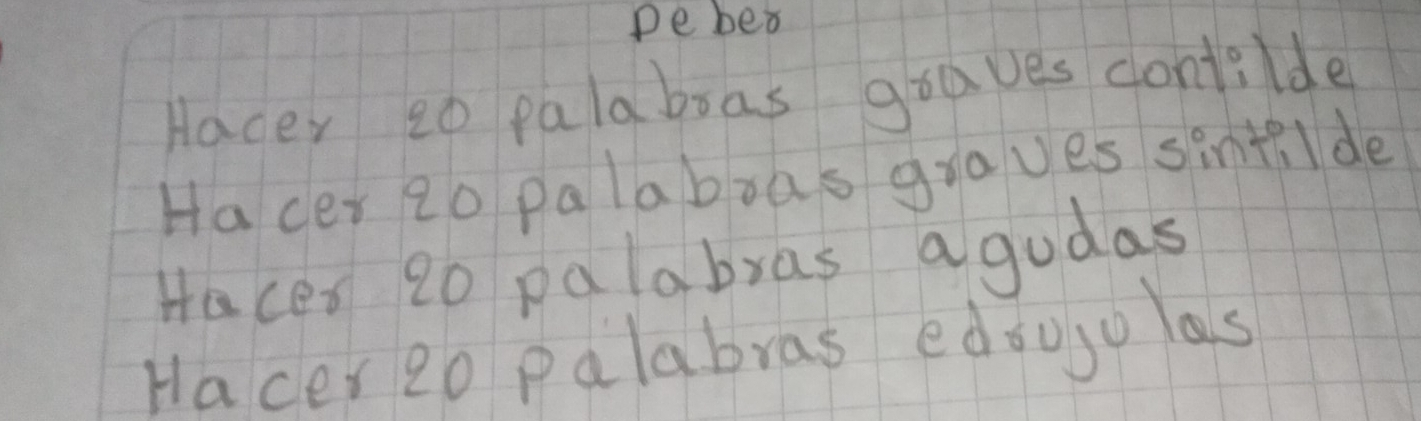 Deber
Hacer 20 palabras graves contilde
Hacer 20 palabras graves sintilde
Hacer 20 palabras agudas
Hacer 20 palabras edrujulas